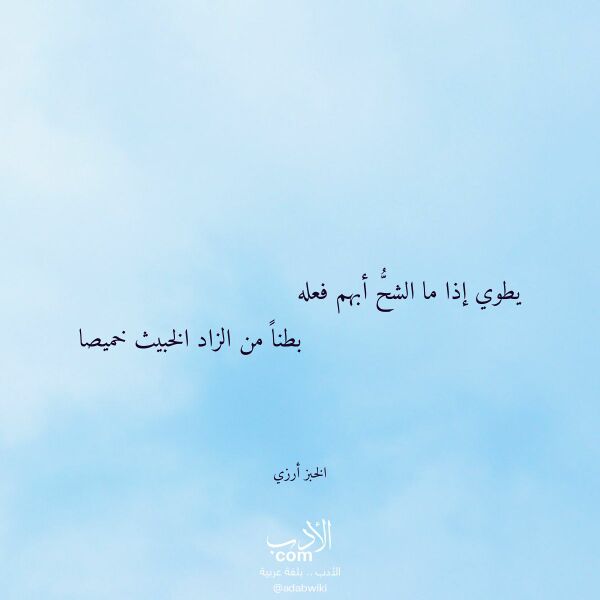 يطوي إذا ما الشحُّ أبهم فعله
بطناً من الزاد الخبيث خميصا
الخبز أرزي
الأدب
.com
الأدب .. بلغة عربية
@adabwiki